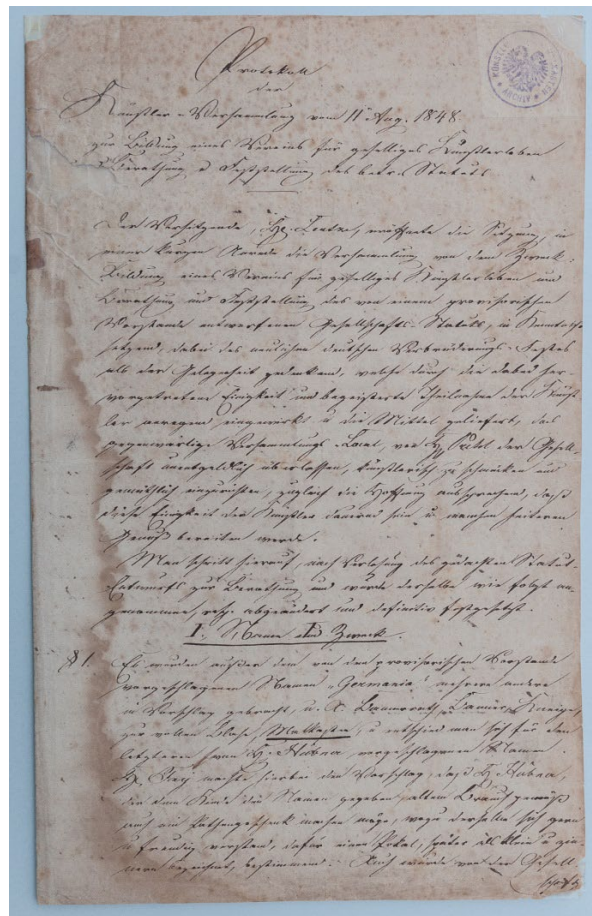 Protokoll
der
Künstler-Versammlung vom 11t Aug. 1848.
zur Bildung eines Vereins für geselliges Künstlerleben
Berathung u Feststellung des betr. Statuts
Der Vorsitzende, H. Leutze, eröffnete die Sitzung, in
einer kurzen Anrede die Versammlung von dem Zweck:
Bildung eines Vereins für geselliges Künstlerleben und
Berathung und Feststellung des von einem provisorischen
Vorstande entworfenen Gesellschafts-Statuts, in Kenntniß
setzend, dabei des neulichen deutschen Verbrüderungs-Festes
als der Gelegenheit gedenkend, welche durch die dabei her-
vorgetretene Einigkeit und begeisterte Theilnahme der Künst-
ler anregend eingewirkt u die Mittel geliefert, das
gegenwärtige Versammlungs-Local, von H. der Gesell-
schaft unentgeldlich überlassen, künstlerisch zu schmücken und
gemüthlich einzurichten, zugleich die Hoffnung aussprechend, daß
diese Einigkeit der Künstler dauernd sein u. manchen heiteren
Genuß bereiten werde.
Man schritt hierauf, nach Verlesung des gedachten Statut-
Entwurfs zur Berathung und wurde derselbe wie folgt an-
genommen, resp. abgeändert und definitiv festgesetzt.
I., Namen und Zweck.
§ 1. Es wurden außer dem von dem provisorischen Vorstande
vorgeschlagenen Namen „Germania“ mehrere andere
in Vorschlag gebracht, u.
zur vollen Blase, Malkasten, u entschied man sich für den
letzteren von H. Hübner vorgeschlagenen Namen.
H. machte hierbei den Vorschlag, daß H. Hübner,
der dem Kinde den Namen gegeben, altem Brauch gemäß
auch ein Pathengeschenk machen möge, wozu derselbe sich gern
u freudig verstand, dafür einen Pokal, später als klein u
bezeichnet, bestimmend. Auch wurde von der Gesell-
schaft